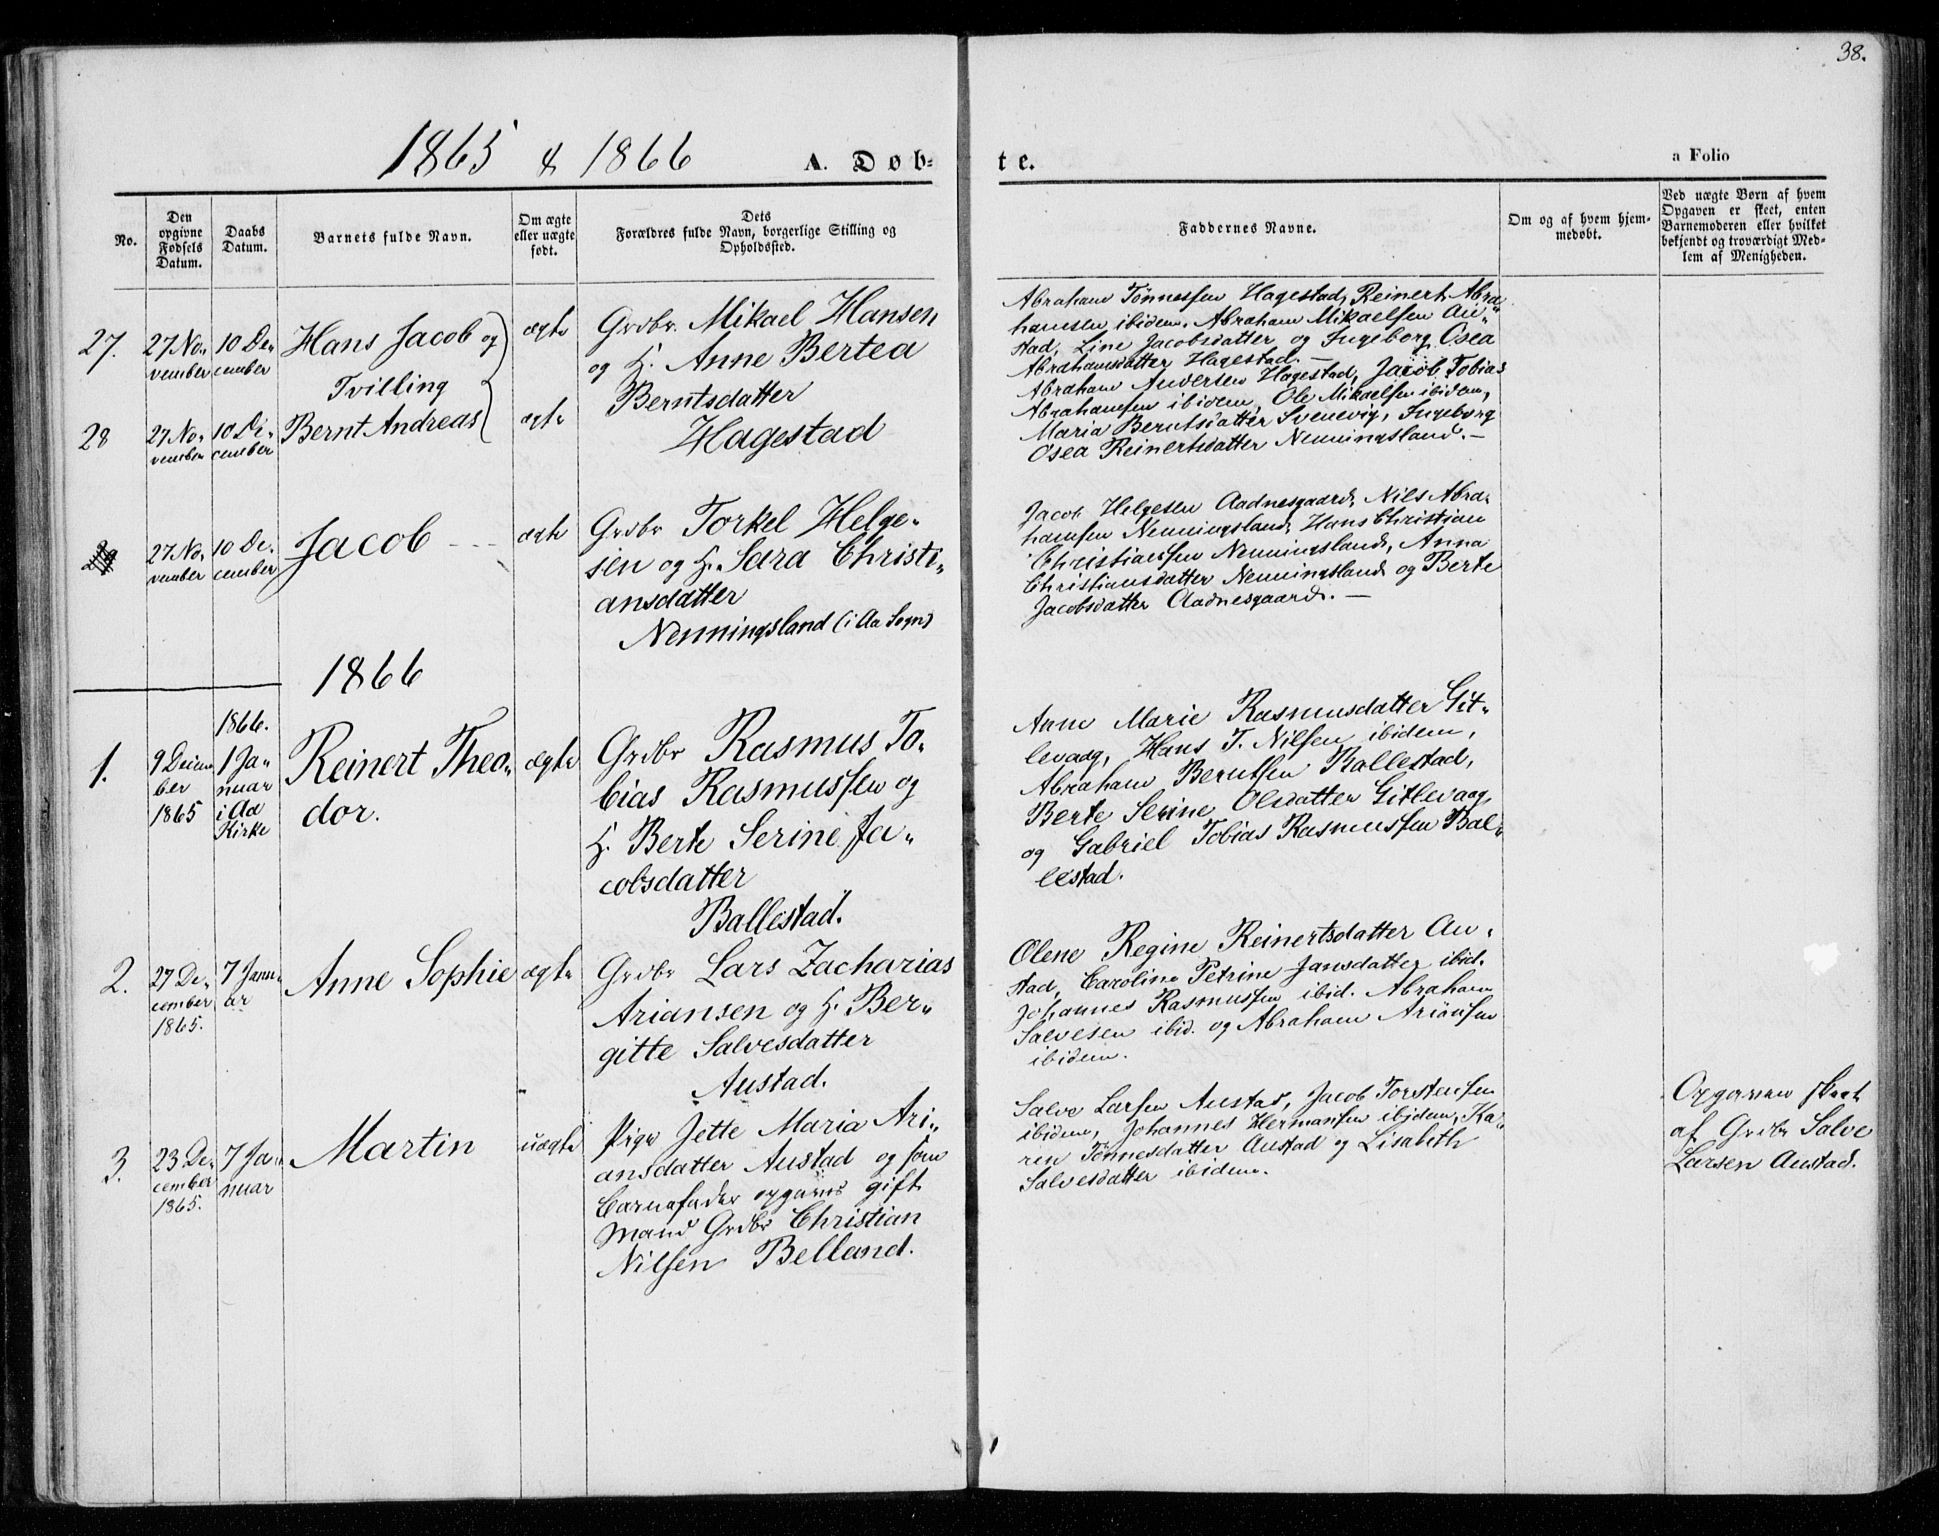 38.
1865 & 1866
A. Døb-
te.
a Folio
No.
Den
opgivne
Fødsels
Datum.
Daabs
Datum.
Barnets fulde Navn.
Om ægte
eller uægte
født.
Dets
Forældres fulde Navn, borgerlige Stilling og
Opholdssted.
Faddernes Navne.
Om og af hvem hjem-
medøbt.
Ved uægte Børn af hvem
Opgaven er skeet, enten
Barnemoderen eller hvilket
bekjendt og troværdigt Med-
lem af Menigheden.
27.
27 No-
vember
10 De-
cember
Hans Jacob og
Tvilling
ægte
Grdbr. Mikael Hansen
og H. Anne Bertea
Berntsdatter
Hagestad
28
27 No-
vember
10 De-
cember
Bernt Andreas
ægte
Abraham Tønnessen Hagestad, Reinert Abra-
hamsen ibidem, Abraham Mikaelsen Au-
stad, Line Jacobsdatter og Ingeborg Osea
Abrahamsdatter Hagestad. —
Abraham Andersen Hagestad, Jacob Tobias
Abrahamsen ibidem, Ole Mikaelsen ibidem,
Maria Berntsdatter Svenevig, Ingeborg
Osea Reinertsdatter Nenningsland. —
27 No-
vember
10 De-
cember
Jacob
ægte
Grdbr Torkel Helge-
sen og H. Sara Christi-
ansdatter
Nenningsland (i Aa Sogn)
Jacob Helgesen Aadnesgaard, Nils Abra-
hamsen Nenningsland, Hans Christian
Christiansen Nenningsland, Anna
Christiansdatter Nenningsland og Berte
Jacobsdatter Aadnesgaard. —
1866
1.
9 Decem-
ber
1865
1866.
1 Ja-
nuar
i Aa
Kirke
Reinert Theo-
dor.
ægte
Grdbr Rasmus To-
bias Rasmussen og
H. Berte Serine Ja-
cobsdatter
Ballestad.
Anne Marie Rasmusdatter Git-
levaag, Hans T. Nilsen ibidem,
Abraham Berntsen Ballestad,
Berte Serine Olsdatter Gitlevaag
og Gabriel Tobias Rasmussen Bal-
lestad.
2.
27 De-
cember
1865.
7 Janu-
ar
Anne Sophie
ægte
Grdbr Lars Zacharias
Ariansen og H. Ber-
gitte Salvesdatter
Austad.
Olene Regine Reinertsdatter Au-
stad, Caroline Petrine Jansdatter ibid.
Johannes Rasmussen ibid. Abraham
Salvesen ibid. og Abraham Ariansen
ibidem.
3.
23 De-
cember
1865.
7 Ja-
nuar
Martin
uægte
Pige Jette Maria Ari-
ansdatter Austad og som
Barnefader opgives gift
Mand Grdbr Christian
Nilsen Belland.
Salve Larsen Austad, Jacob Torstensen
ibidem, Johannes Hermansen ibidem, Ka-
ren Tønnesdatter Austad og Lisabeth
Salvesdatter ibidem.
Opgaven skeet
af Grdbr Salve
Larsen Austad.